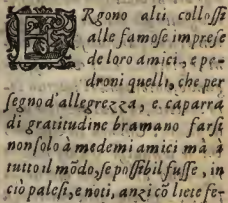 ERgono alti collossi
alle famose imprese
de loro amici, e pe-
droni quelli, che per
segno d'allegrezza, e caparra
di gratitudine bramano farsi
non solo à medemi amici mà à
tutto il mõdo, se possibil fusse, in
ciò palesi, e noti, anzi cõ liete fe-